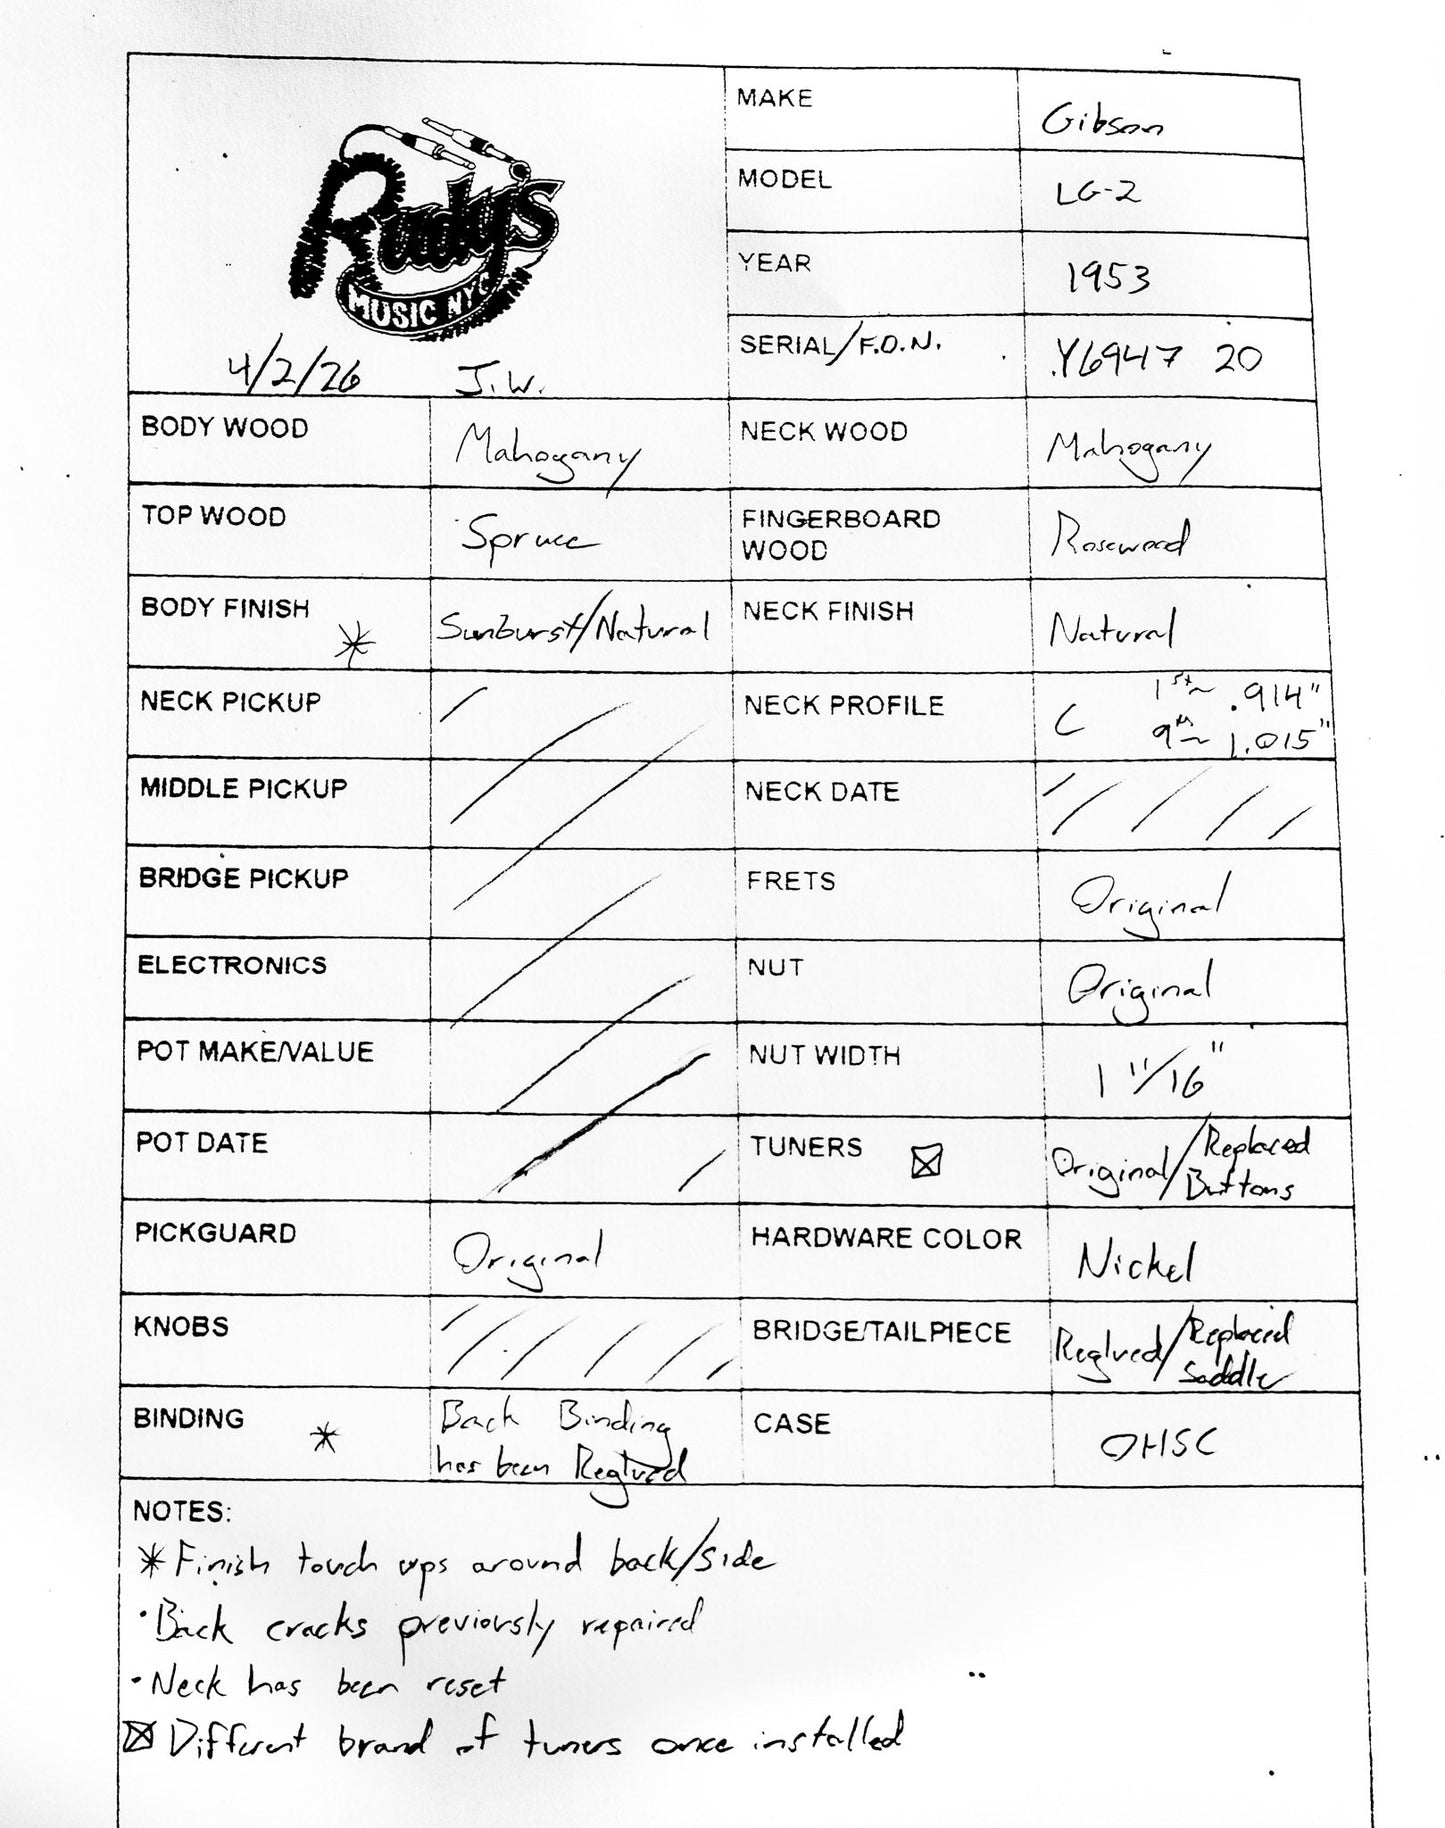 Rudy's
MUSIC NYC
4/2/26 J.W.
MAKE Gibson
MODEL LG-2
YEAR 1953
SERIAL/F.O.N. Y6947 20
BODY WOOD Mahogany
NECK WOOD Mahogany
TOP WOOD Spruce
FINGERBOARD
WOOD Rosewood
BODY FINISH * Sunburst/Natural
NECK FINISH Natural
NECK PICKUP
NECK PROFILE C 1st ~ .914"
9th ~ 1.015"
MIDDLE PICKUP
NECK DATE
BRIDGE PICKUP
FRETS Original
ELECTRONICS
NUT Original
POT MAKE/VALUE
NUT WIDTH 1 11/16"
POT DATE
TUNERS ☒ Original/Replaced
Buttons
PICKGUARD Original
HARDWARE COLOR Nickel
KNOBS
BRIDGE/TAILPIECE Reglued/Replaced
Saddle
BINDING * Back Binding
has been Reglued
CASE OHSC
NOTES:
* Finish touch ups around back/side
· Back cracks previously repaired
· Neck has been reset
☒ Different brand of tuners once installed